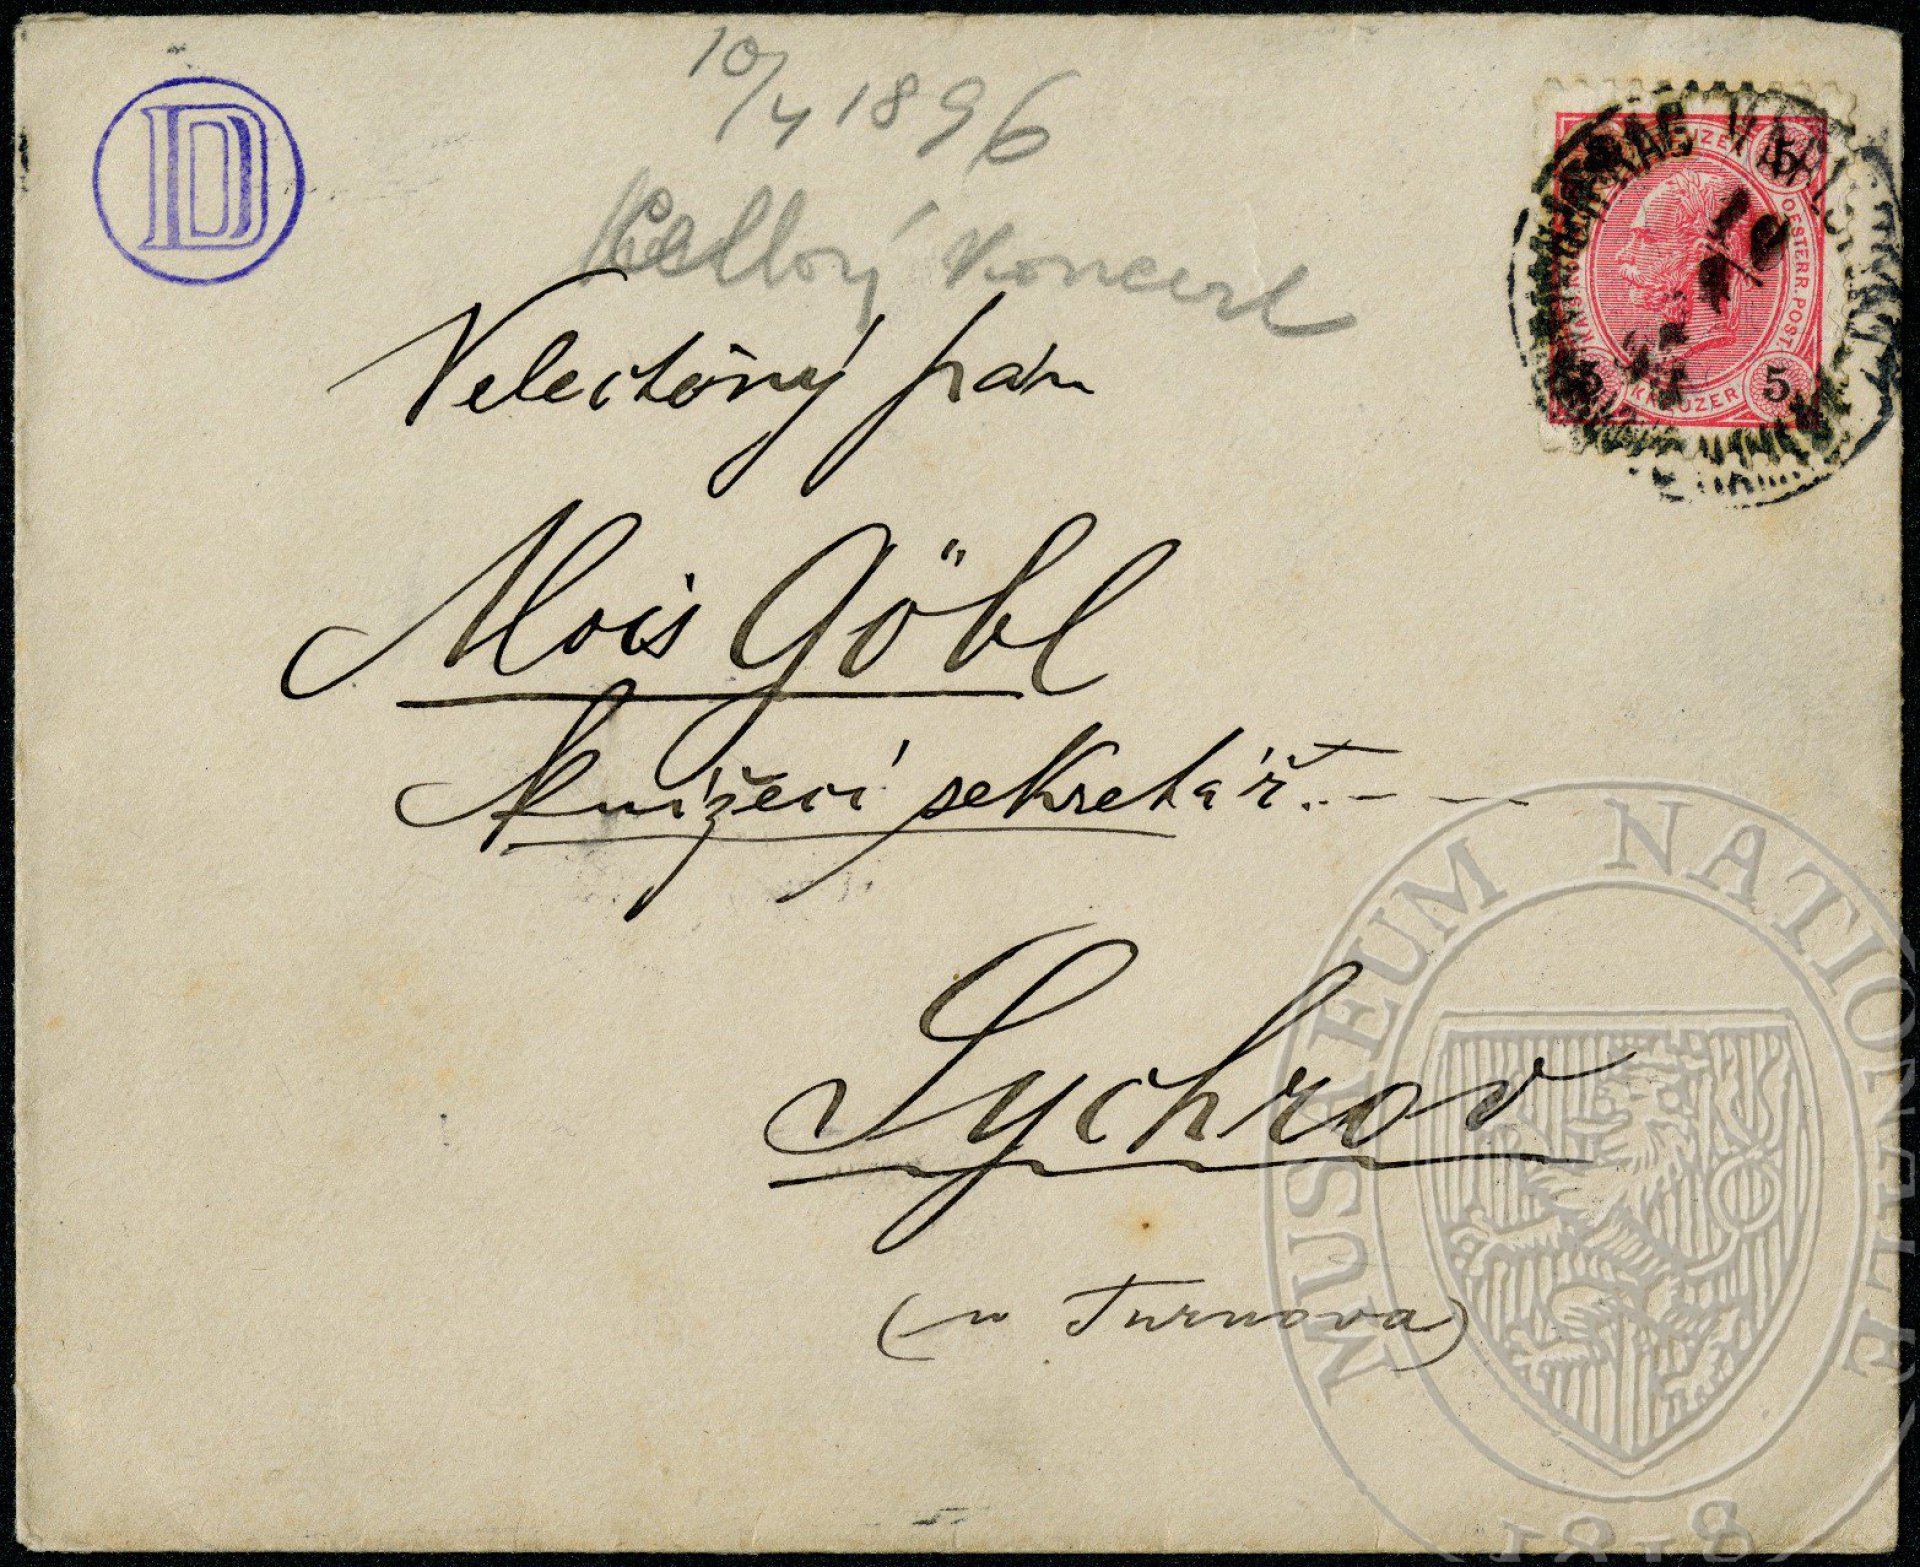 D
10/4 1896
Cellový koncert
Velectěný pán
Alois Göbl
Knížecí sekretář.---
Sychrov
(u Turnova)
KREUZER
OESTERR. POST.
5
5
5
KREUZER
MUSAEUM NATIONALE
1818